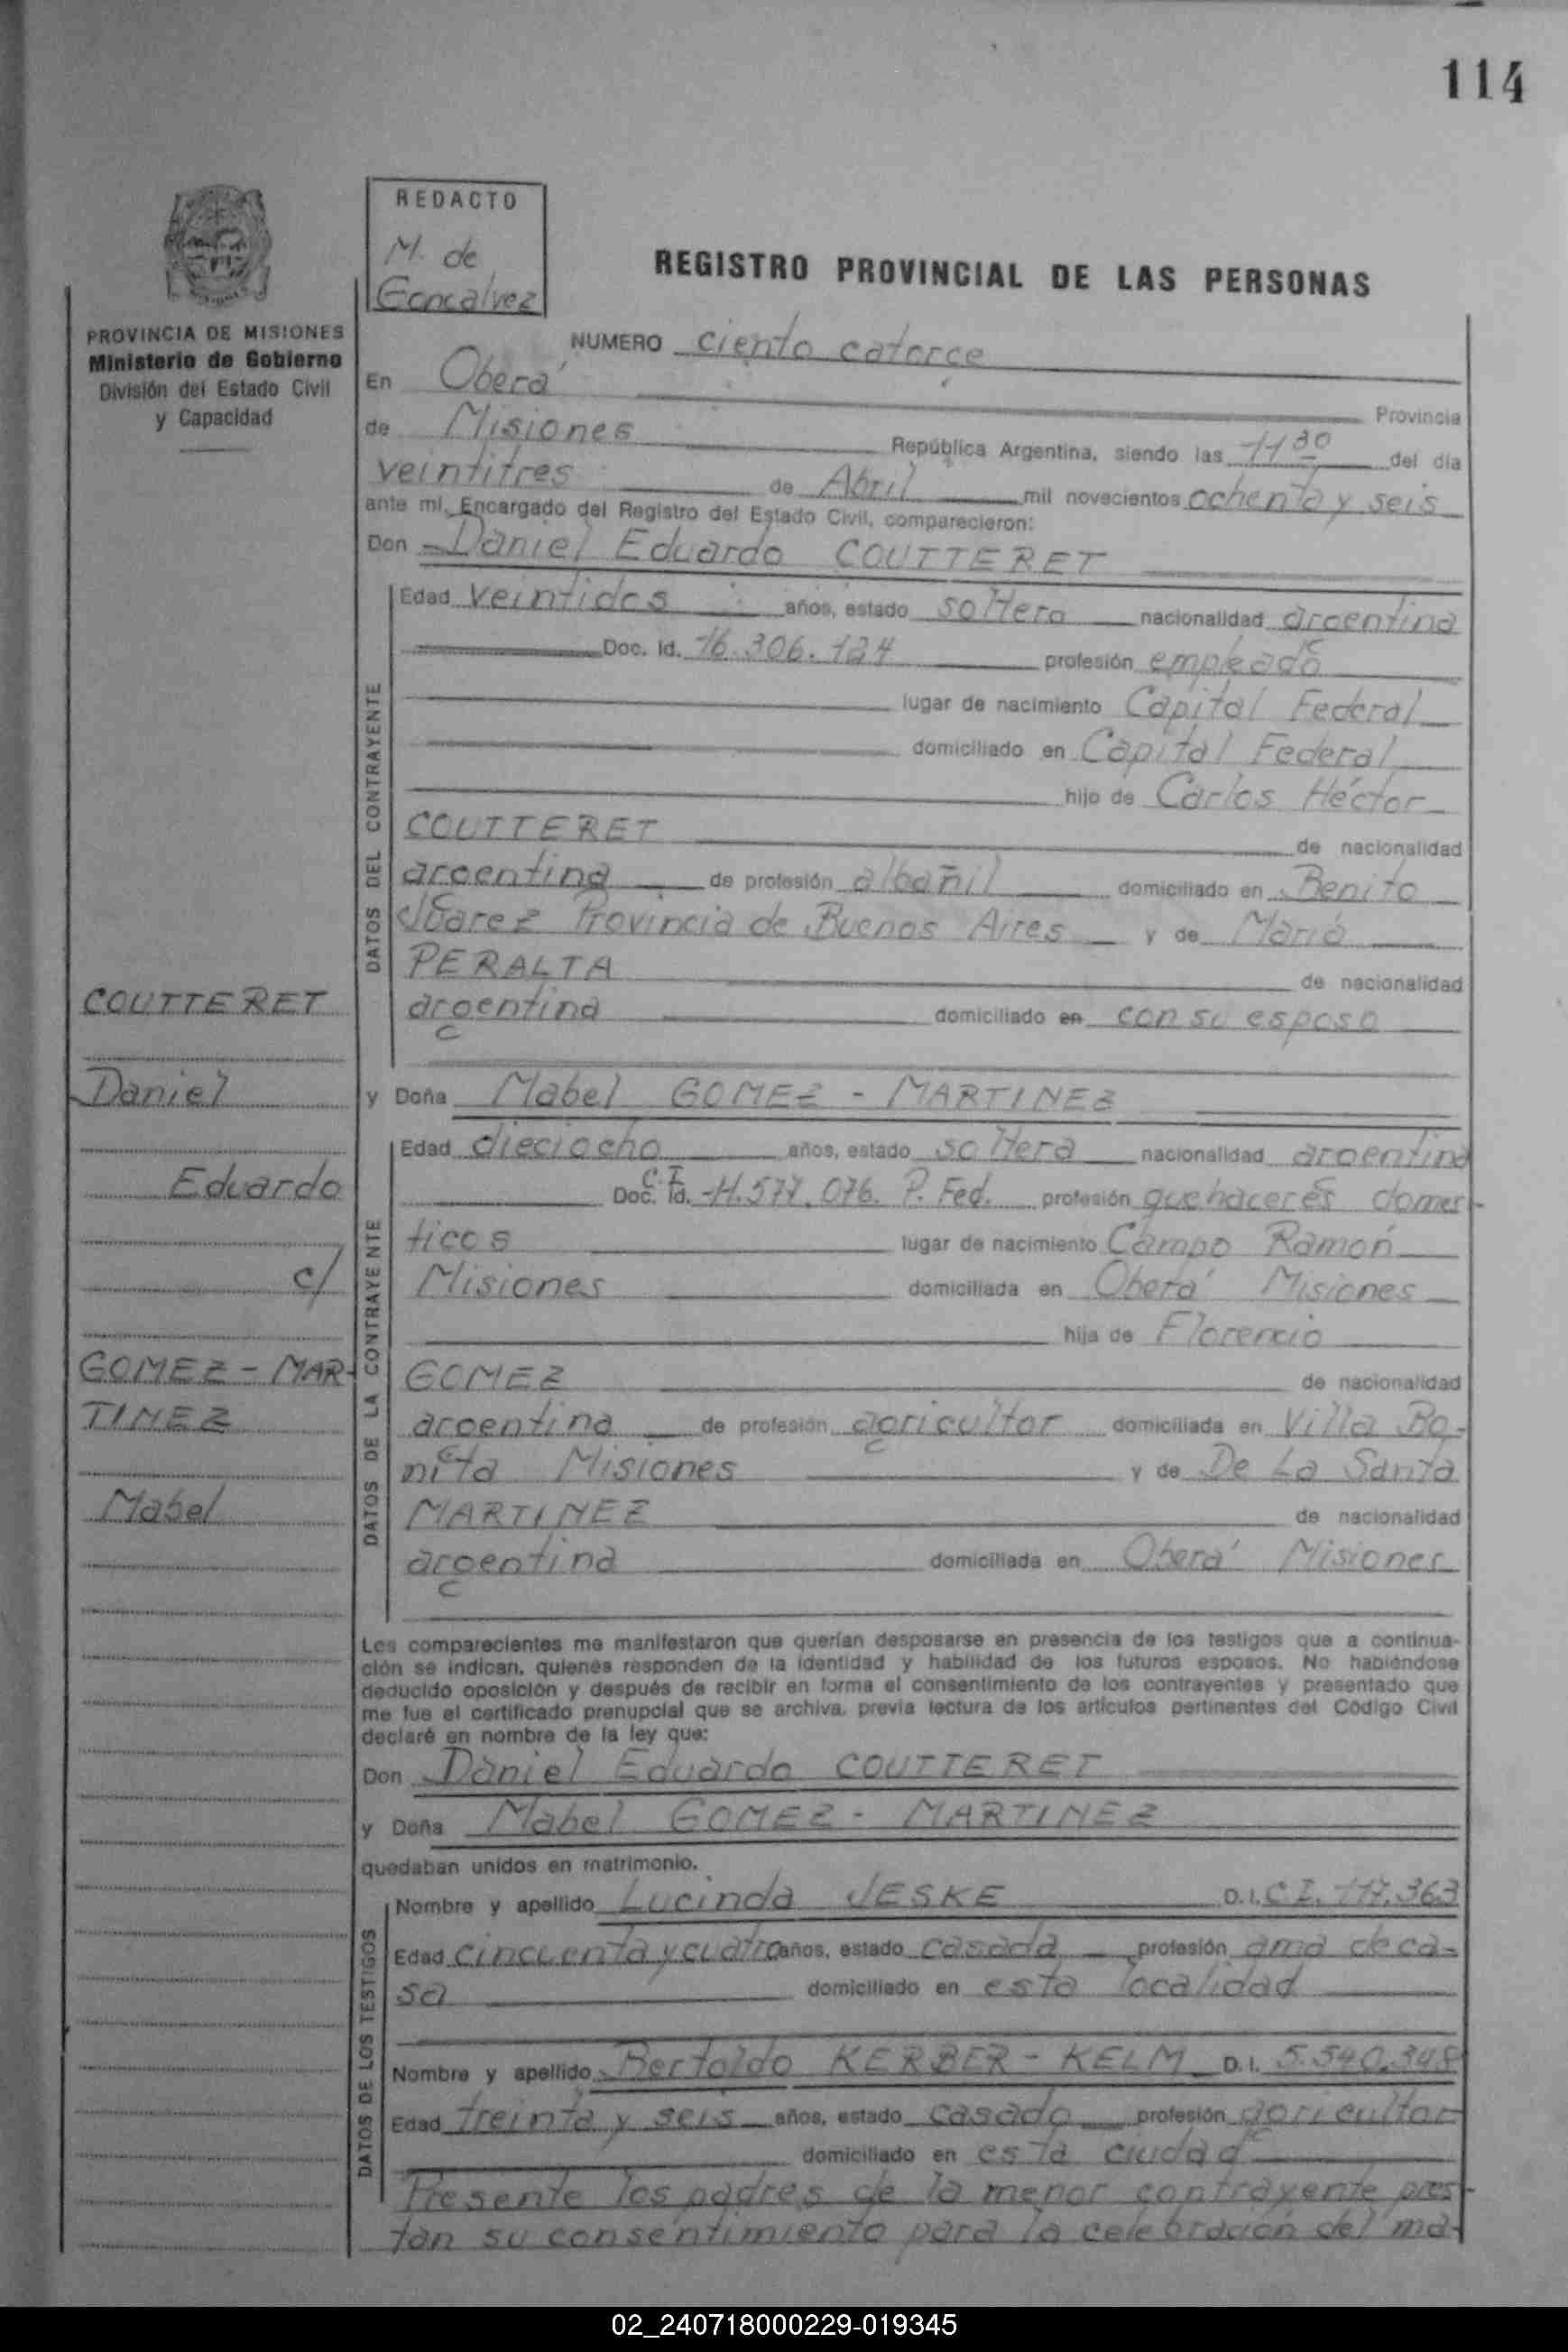 114
REDACTO
M. de
Goncalvez
REGISTRO PROVINCIAL DE LAS PERSONAS
PROVINCIA DE MISIONES
Ministerio de Gobierno
División del Estado Civil
y Capacidad
NUMERO ciento catorce
En Oberá Provincia
de Misiones República Argentina, siendo las 11 30 del día
veintitres de Abril mil novecientos ochenta y seis
ante mí, Encargado del Registro del Estado Civil, comparecieron:
Don Daniel Eduardo COUTTERET
DATOS DEL CONTRAYENTE
Edad veintidos años, estado soltero nacionalidad argentina
Doc. Id. 16.306.124 profesión empleado
lugar de nacimiento Capital Federal
domiciliado en Capital Federal
hijo de Carlos Héctor
COUTTERET de nacionalidad
argentina de profesión albañil domiciliado en Benito
Juarez Provincia de Buenos Aires y de María
PERALTA de nacionalidad
argentina domiciliado en con su esposo
y Doña Mabel GOMEZ - MARTINEZ
DATOS DE LA CONTRAYENTE
Edad dieciocho años, estado soltera nacionalidad argentina
C.I. Doc. Id. 11.577.076. P. Fed. profesión quehaceres domes-
ticos lugar de nacimiento Campo Ramón
Misiones domiciliada en Oberá Misiones
hija de Florencio
GOMEZ de nacionalidad
argentina de profesión agricultor domiciliada en Villa Bo-
nita Misiones y de De La Santa
MARTINEZ de nacionalidad
argentina domiciliada en Oberá Misiones
COUTTERET
Daniel
Eduardo
c/
GOMEZ - MAR-
TINEZ
Mabel
Los comparecientes me manifestaron que querían desposarse en presencia de los testigos que a continua-
ción se indican, quienes responden de la identidad y habilidad de los futuros esposos. No habiéndose
deducido oposición y después de recibir en forma el consentimiento de los contrayentes y presentado que
me fue el certificado prenupcial que se archiva, previa lectura de los artículos pertinentes del Código Civil
declaré en nombre de la ley que:
Don Daniel Eduardo COUTTERET
y Doña Mabel GOMEZ - MARTINEZ
quedaban unidos en matrimonio.
DATOS DE LOS TESTIGOS
Nombre y apellido Lucinda JESKE D.I. C I. 117.363
Edad cincuenta y cuatro años, estado casada profesión ama de ca-
sa domiciliado en esta localidad
Nombre y apellido Bertoldo KERBER - KELM D.I. 5.540.348
Edad treinta y seis años, estado casado profesión agricultor
domiciliado en esta ciudad
Presente los padres de la menor contrayente pres-
tan su consentimiento para la celebración del ma-
02_240718000229-019345